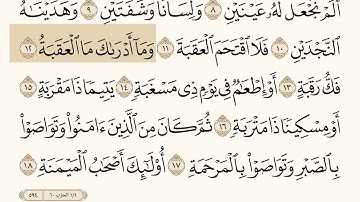 أَلَمْ نَجْعَل لَّهُۥ عَيْنَيْنِ ٨ وَلِسَانًا وَشَفَتَيْنِ ٩ وَهَدَيْنَٰهُ
ٱلنَّجْدَيْنِ ١٠ فَلَا ٱقْتَحَمَ ٱلْعَقَبَةَ ١١ وَمَآ أَدْرَىٰكَ مَا ٱلْعَقَبَةُ ١٢
فَكُّ رَقَبَةٍ ١٣ أَوْ إِطْعَٰمٌ فِى يَوْمٍ ذِى مَسْغَبَةٍ ١٤ يَتِيمًا ذَا مَقْرَبَةٍ ١٥
أَوْ مِسْكِينًا ذَا مَتْرَبَةٍ ١٦ ثُمَّ كَانَ مِنَ ٱلَّذِينَ ءَامَنُوا۟ وَتَوَاصَوْا۟
بِٱلصَّبْرِ وَتَوَاصَوْا۟ بِٱلْمَرْحَمَةِ ١٧ أُو۟لَٰٓئِكَ أَصْحَٰبُ ٱلْمَيْمَنَةِ ١٨
١/٤ الحزب ٦٠
٥٩٤